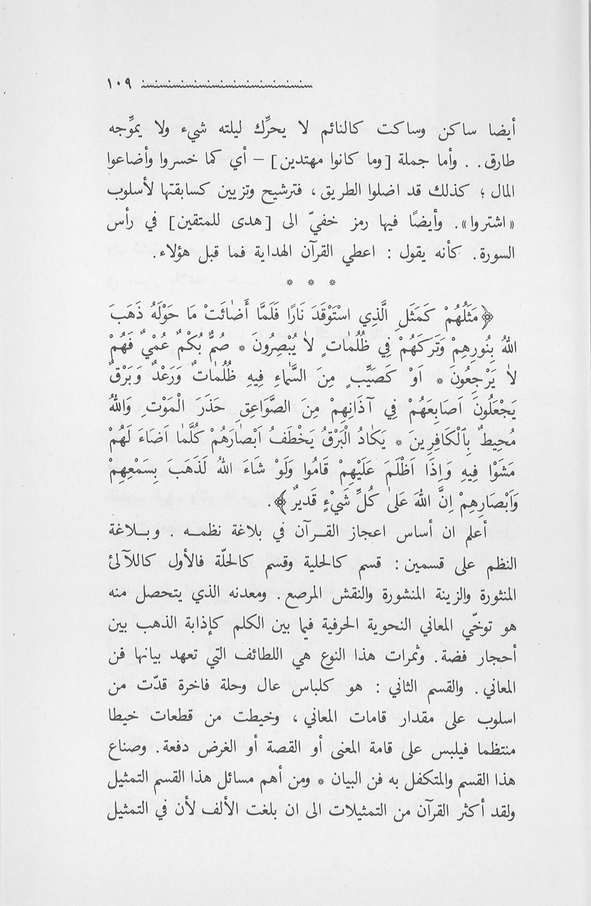 ١٠٩
أيضا ساكن وساكت كالنائم لا يحرِّك ليلته شيء ولا يموِّجه
طارق. . وأما جملة [وما كانوا مهتدين] – أي كما خسروا وأضاعوا
المال ؛ كذلك قد اضلوا الطريق ، فترشيح وتزيين كسابقتها لأسلوب
«اشتروا». وأيضًا فيها رمز خفيّ الى [هدى للمتقين] في رأس
السورة. كأنه يقول : اعطي القرآن الهداية فما قبل هؤلاء.
* * *
﴿مَثَلُهُمْ كَمَثَلِ الَّذِي اسْتَوْقَدَ نَارًا فَلَمَّا أَضَائَتْ مَا حَوْلَهُ ذَهَبَ
اللهُ بِنُورِهِمْ وَتَرَكَهُمْ فِي ظُلُمَاتٍ لاَ يُبْصِرُونَ * صُمٌّ بُكْمٌ عُمْيٌ فَهُمْ
لاَ يَرْجِعُونَ * اَوْ كَصَيِّبٍ مِنَ السَّمَاءِ فِيهِ ظُلُمَاتٌ وَرَعْدٌ وَبَرْقٌ
يَجْعَلُونَ اَصَابِعَهُمْ فِي آذَانِهِمْ مِنَ الصَّوَاعِقِ حَذَرَ الْمَوْتِ وَاللهُ
مُحِيطٌ بِالْكَافِرِينَ * يَكَادُ الْبَرْقُ يَخْطَفُ اَبْصَارَهُمْ كُلَّمَا اَضَاءَ لَهُمْ
مَشَوْا فِيهِ وَاِذَا اَظْلَمَ عَلَيْهِمْ قَامُوا وَلَوْ شَاءَ اللهُ لَذَهَبَ بِسَمْعِهِمْ
وَاَبْصَارِهِمْ اِنَّ اللهَ عَلَى كُلِّ شَيْءٍ قَدِيرٌ﴾.
أعلم ان أساس اعجاز القـرآن في بلاغة نظمـه . وبـلاغة
النظم على قسمين: قسم كالحلية وقسم كالحلّة فالأول كاللآلئ
المنثورة والزينة المنشورة والنقش المرصع. ومعدنه الذي يتحصل منه
هو توخّي المعاني النحوية الحرفية فيما بين الكلم كإذابة الذهب بين
أحجار فضة. وثمرات هذا النوع هي اللطائف التي تعهد بيانها فن
المعاني. والقسم الثاني : هو كلباس عال وحلة فاخرة قدّت من
اسلوب على مقدار قامات المعاني ، وخيطت من قطعات خيطا
منتظما فيلبس على قامة المعنى أو القصة أو الغرض دفعة. وصناع
هذا القسم والمتكفل به فن البيان * ومن أهم مسائل هذا القسم التمثيل
ولقد أكثر القرآن من التمثيلات الى ان بلغت الألف لأن في التمثيل